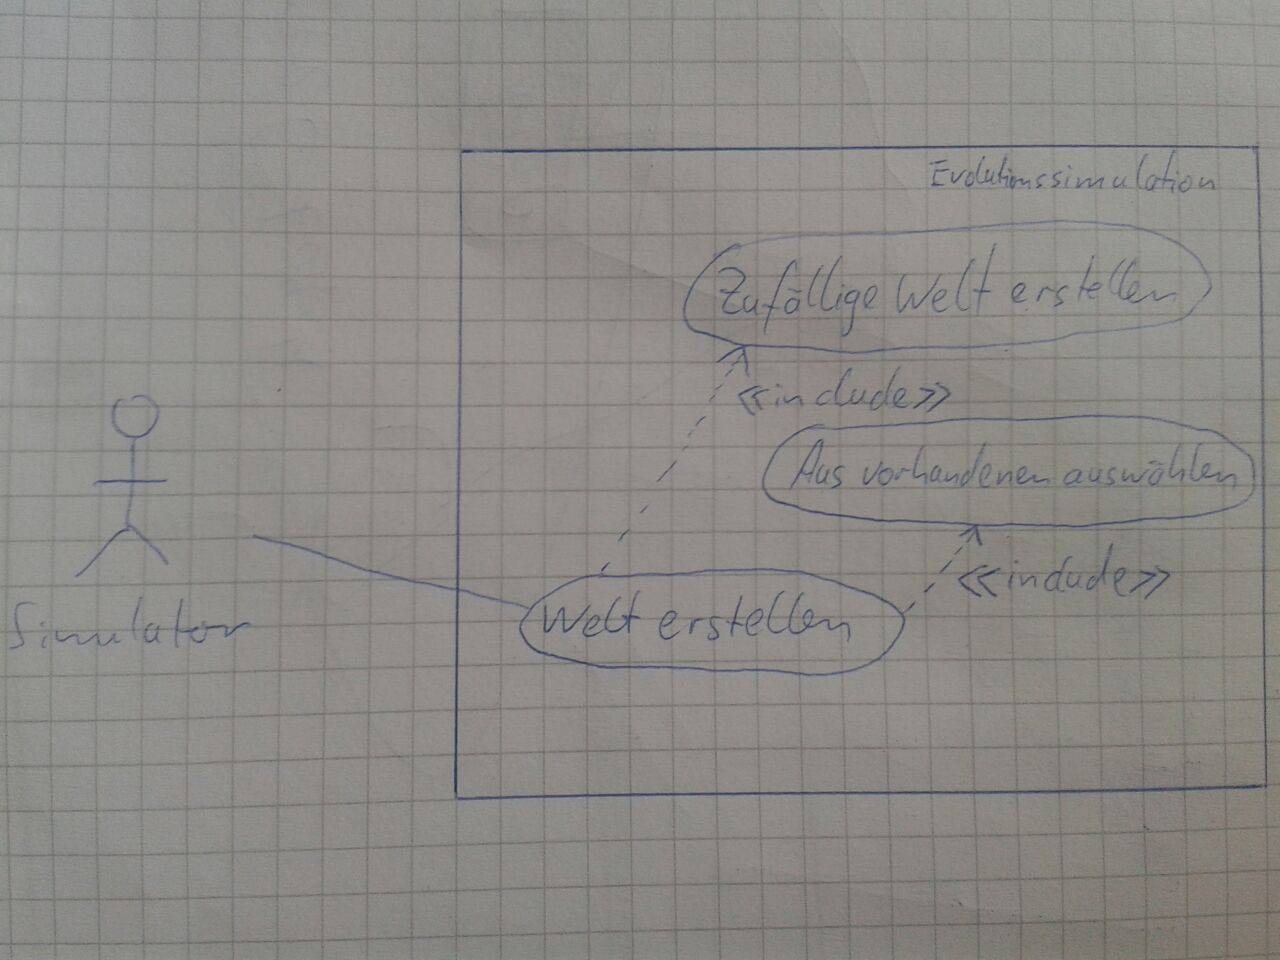 Evolutionssimulation
Zufällige Welt erstellen
<<include>>
Aus vorhandenen auswählen
<<include>>
Welt erstellen
Simulator